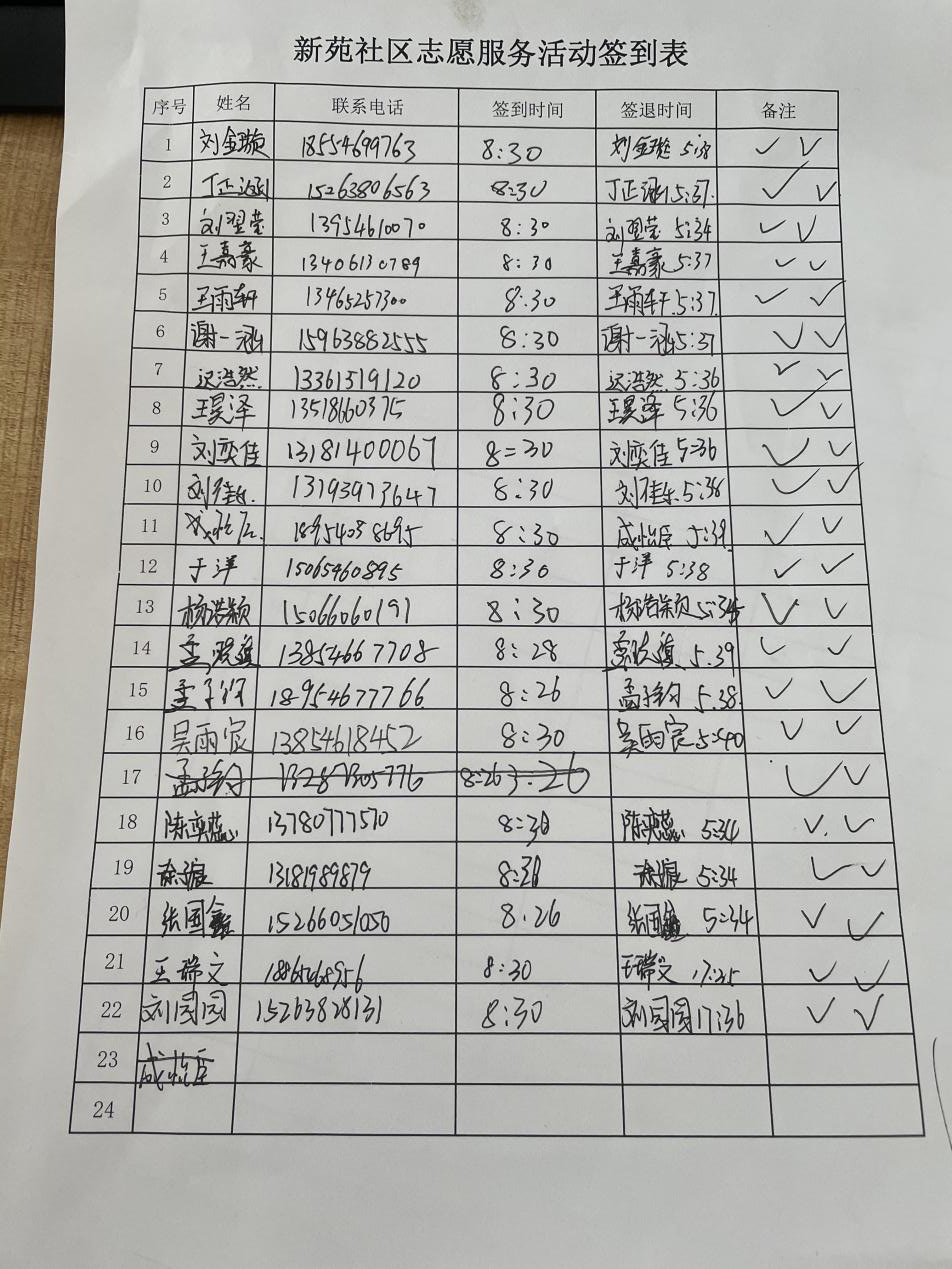 新苑社区志愿服务活动签到表
序号 姓名 联系电话 签到时间 签退时间 备注
1 刘金璇 18554699763 8:30 刘金璇 5:38 ✓ ✓
2 丁正涵 15263806563 8:30 丁正涵 5:37. ✓ ✓
3 刘翌莹 13954610070 8:30 刘翌莹 5:34 ✓ ✓
4 王嘉豪 13406130789 8:30 王嘉豪 5:37 ✓ ✓
5 王雨轩 13465257300 8:30 王雨轩 5:37. ✓ ✓
6 谢一涵 15963882555 8:30 谢一涵 5:37 ✓ ✓
7 迟浩然 13361519120 8:30 迟浩然 5:36 ✓ ✓
8 王昊泽 13518660375 8:30 王昊泽 5:36 ✓ ✓
9 刘奕佳 13181400067 8:30 刘奕佳 5:36 ✓ ✓
10 刘佳乐 13793973647 8:30 刘佳乐 5:38 ✓ ✓
11 成怡臣 18954038695 8:30 成怡臣 5:39 ✓ ✓
12 于洋 15065460895 8:30 于洋 5:38 ✓ ✓
13 杨浩颖 15066060191 8:30 杨浩颖 5:34 ✓ ✓
14 13854667708 8:28 5.39 ✓ ✓
15 孟子钧 18954677766 8:26 孟子钧 5.38 ✓ ✓
16 吴雨宸 13854618452 8:30 吴雨宸 5:40 ✓ ✓
17 孟子钧 13287305776 8:26 ✓ ✓
18 陈奕蕊 13780777570 8:30 陈奕蕊 5:34 ✓ ✓
19 13181989879 5:34 ✓ ✓
20 张国鑫 15266051050 8.26 张国鑫 5:34 ✓ ✓
21 王瑞文 18865468956 8:30 王瑞文 17:35 ✓ ✓
22 刘园园 15263828131 8:30 刘园园 17:36 ✓ ✓
23 成怡臣
24